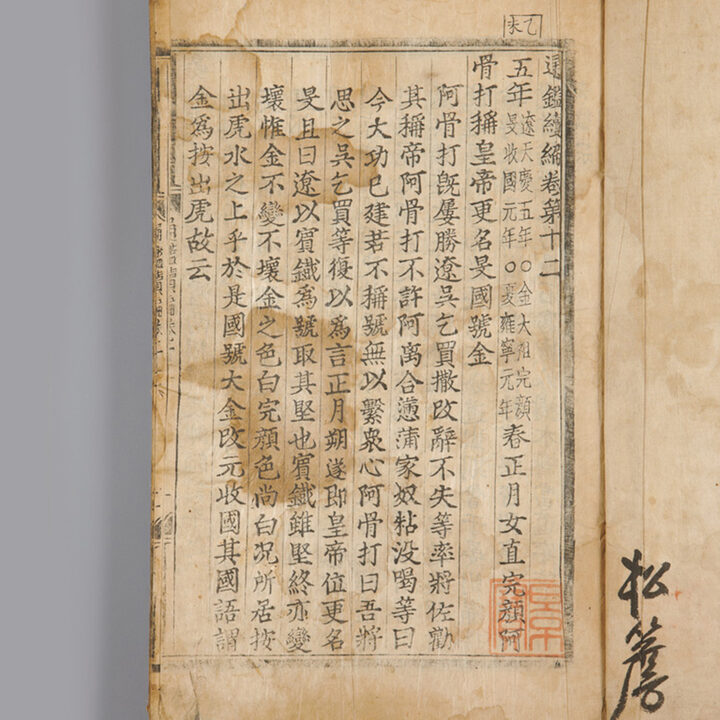 乙未
通鑑續編卷第十二
五年遼天慶五年○金大祖完顔旻收國元年○夏雍寧元年春正月女直完顔阿
骨打稱皇帝更名旻國號金
阿骨打旣屢勝遼吳乞買撒改辭不失等率將佐勸
其稱帝阿骨打不許阿离合懣蒲家奴粘没喝等曰
今大功已建若不稱號無以繫衆心阿骨打曰吾將
思之吳乞買等復以爲言正月朔遂即皇帝位更名
旻且曰遼以賓鐵爲號取其堅也賓鐵雖堅終亦變
壞惟金不變不壞金之色白完顔色尚白况所居按
出虎水之上乎於是國號大金改元收國其國語謂
金爲按出虎故云
松簷